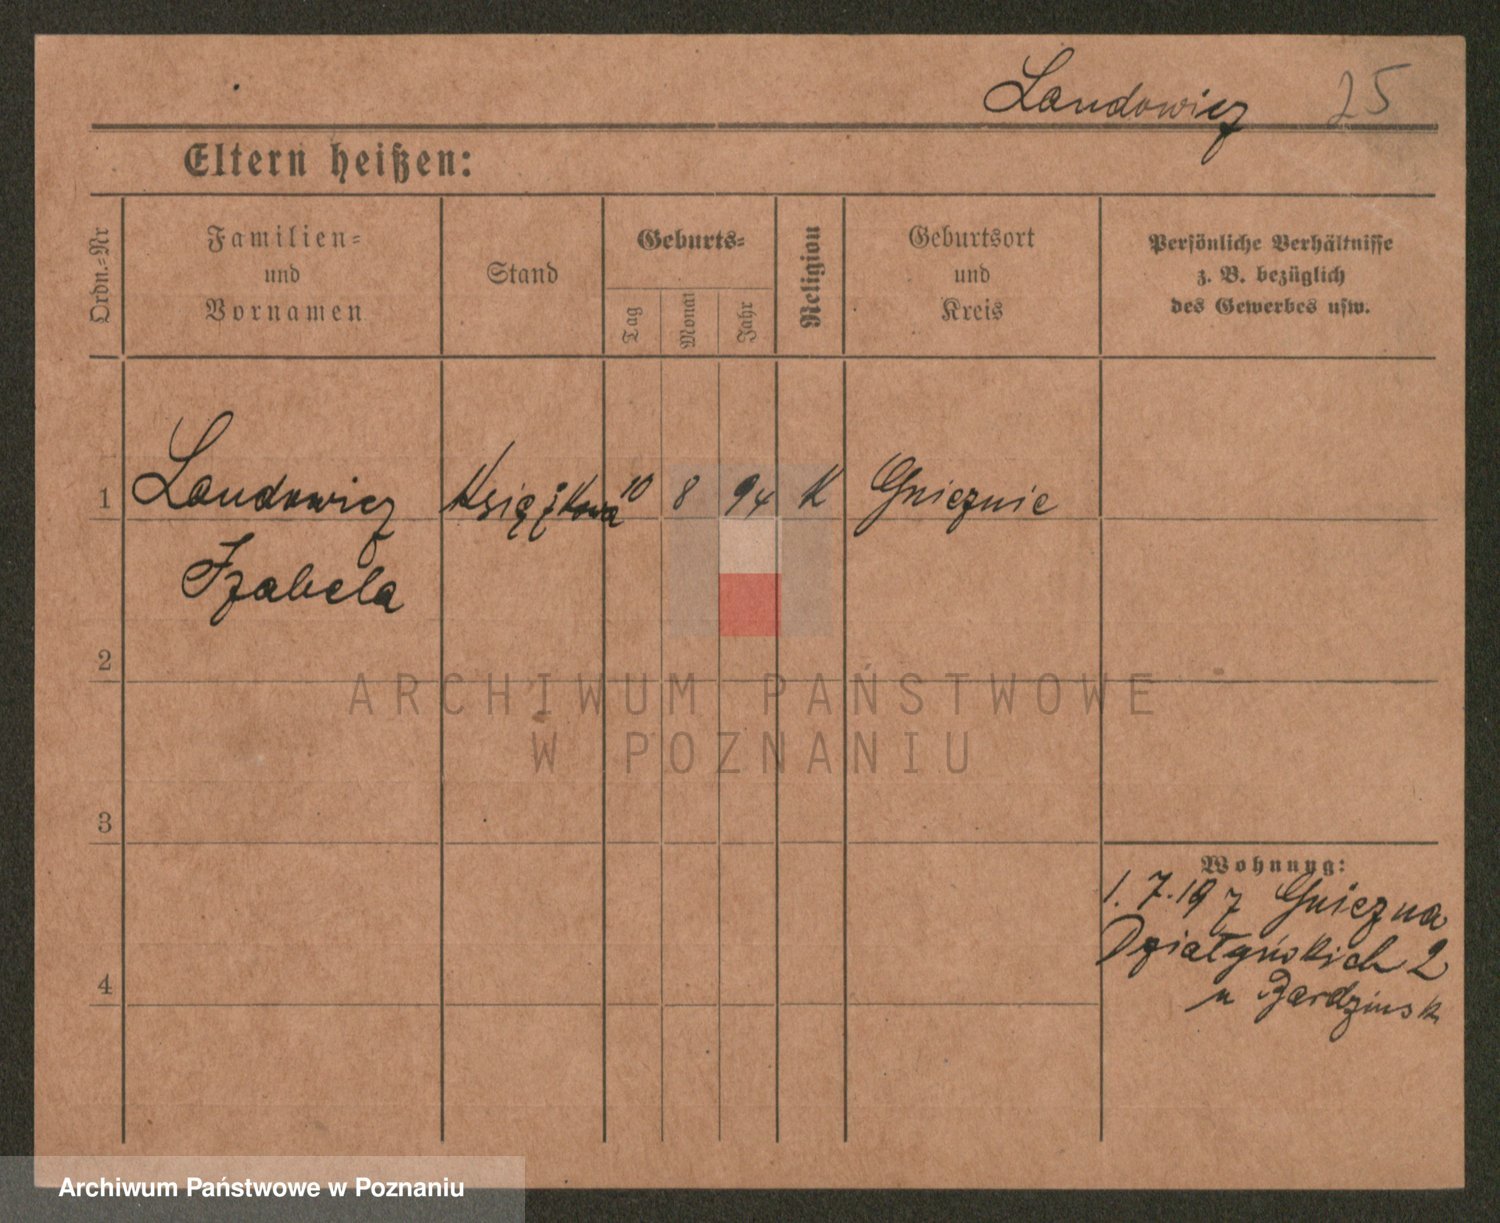 Landowicz 25
Eltern heißen:
Ordn.=Nr
Familien=
und
Vornamen
Stand
Geburts=
Tag
Monat
Jahr
Religion
Geburtsort
und
Kreis
Persönliche Verhältnisse
z. B. bezüglich
des Gewerbes usw.
1 Landowicz Książkowa 10 8 94 K Gnieznie
Izabela
2
3
4
Wohnung:
1. 7. 19 Gniezna
Działyńskich 2
u Bardzinsk
ARCHIWUM PAŃSTWOWE
W POZNANIU
Archiwum Państwowe w Poznaniu